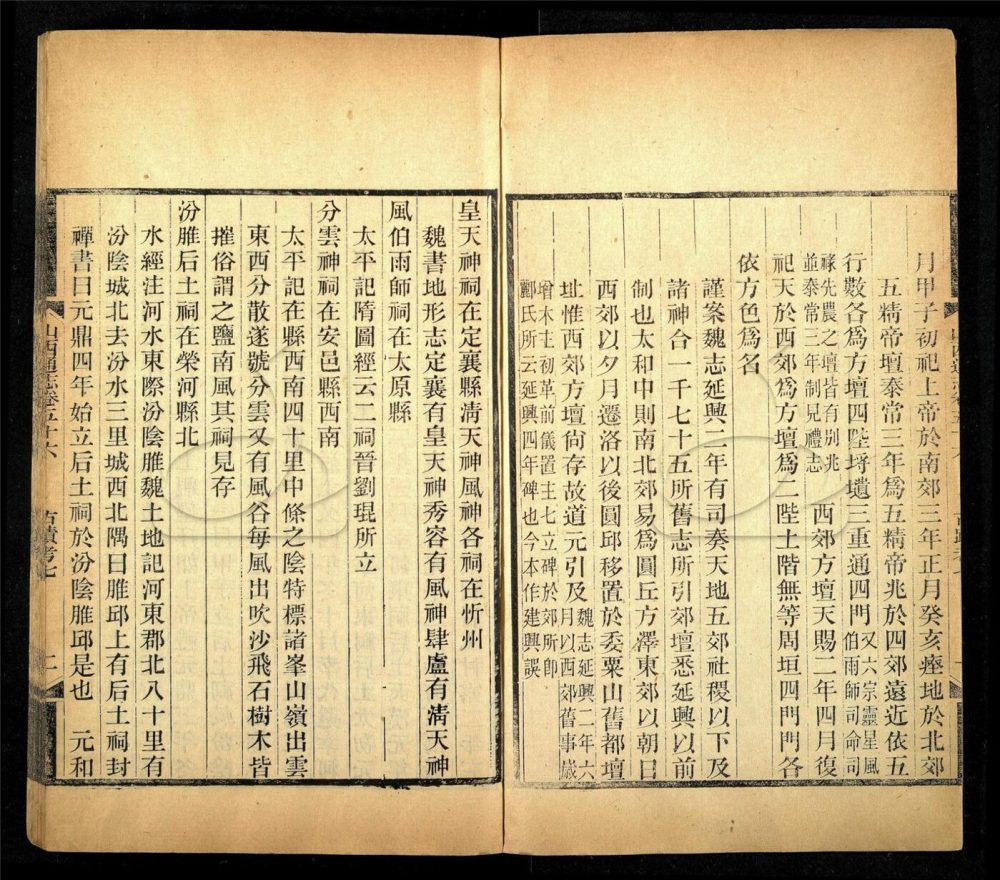 月甲子初祀上帝於南郊三年正月癸亥瘞地於北郊
五精帝壇泰常三年爲五精帝兆於四郊遠近依五
行數各爲方壇四陛埒壝三重通四門又六宗靈星風伯雨師司命司
祿先農之壇皆有別兆並泰常三年制見禮志 西郊方壇天賜二年四月復
祀天於西郊爲方壇爲二陛土階無等周垣四門門各
依方色爲名
謹案魏志延興二年有司奏天地五郊社稷以下及
諸神合一千七十五所舊志所引郊壇悉延興以前
制也太和中則南北郊易爲圓丘方澤東郊以朝日
西郊以夕月遷洛以後圓邱移置於委粟山舊都壇
址惟西郊方壇尙存故道元引及魏志延興二年六月以西郊舊事歲
增木主初革前儀置主七立碑於郊所卽酈氏所云延興四年碑也今本作建興誤
山西通志卷五十六 古蹟考七 二
皇天神祠在定襄縣淸天神風神各祠在忻州
魏書地形志定襄有皇天神秀容有風神肆盧有淸天神
風伯雨師祠在太原縣
太平記隋圖經云二祠晉劉琨所立
分雲神祠在安邑縣西南
太平記在縣西南四十里中條之陰特標諸峯山嶺出雲
東西分散遂號分雲又有風谷每風出吹沙飛石樹木皆
摧俗謂之鹽南風其祠見存
汾脽后土祠在榮河縣北
水經注河水東際汾陰脽魏土地記河東郡北八十里有
汾陰城北去汾水三里城西北隅曰脽邱上有后土祠封
禪書曰元鼎四年始立后土祠於汾陰脽邱是也 元和